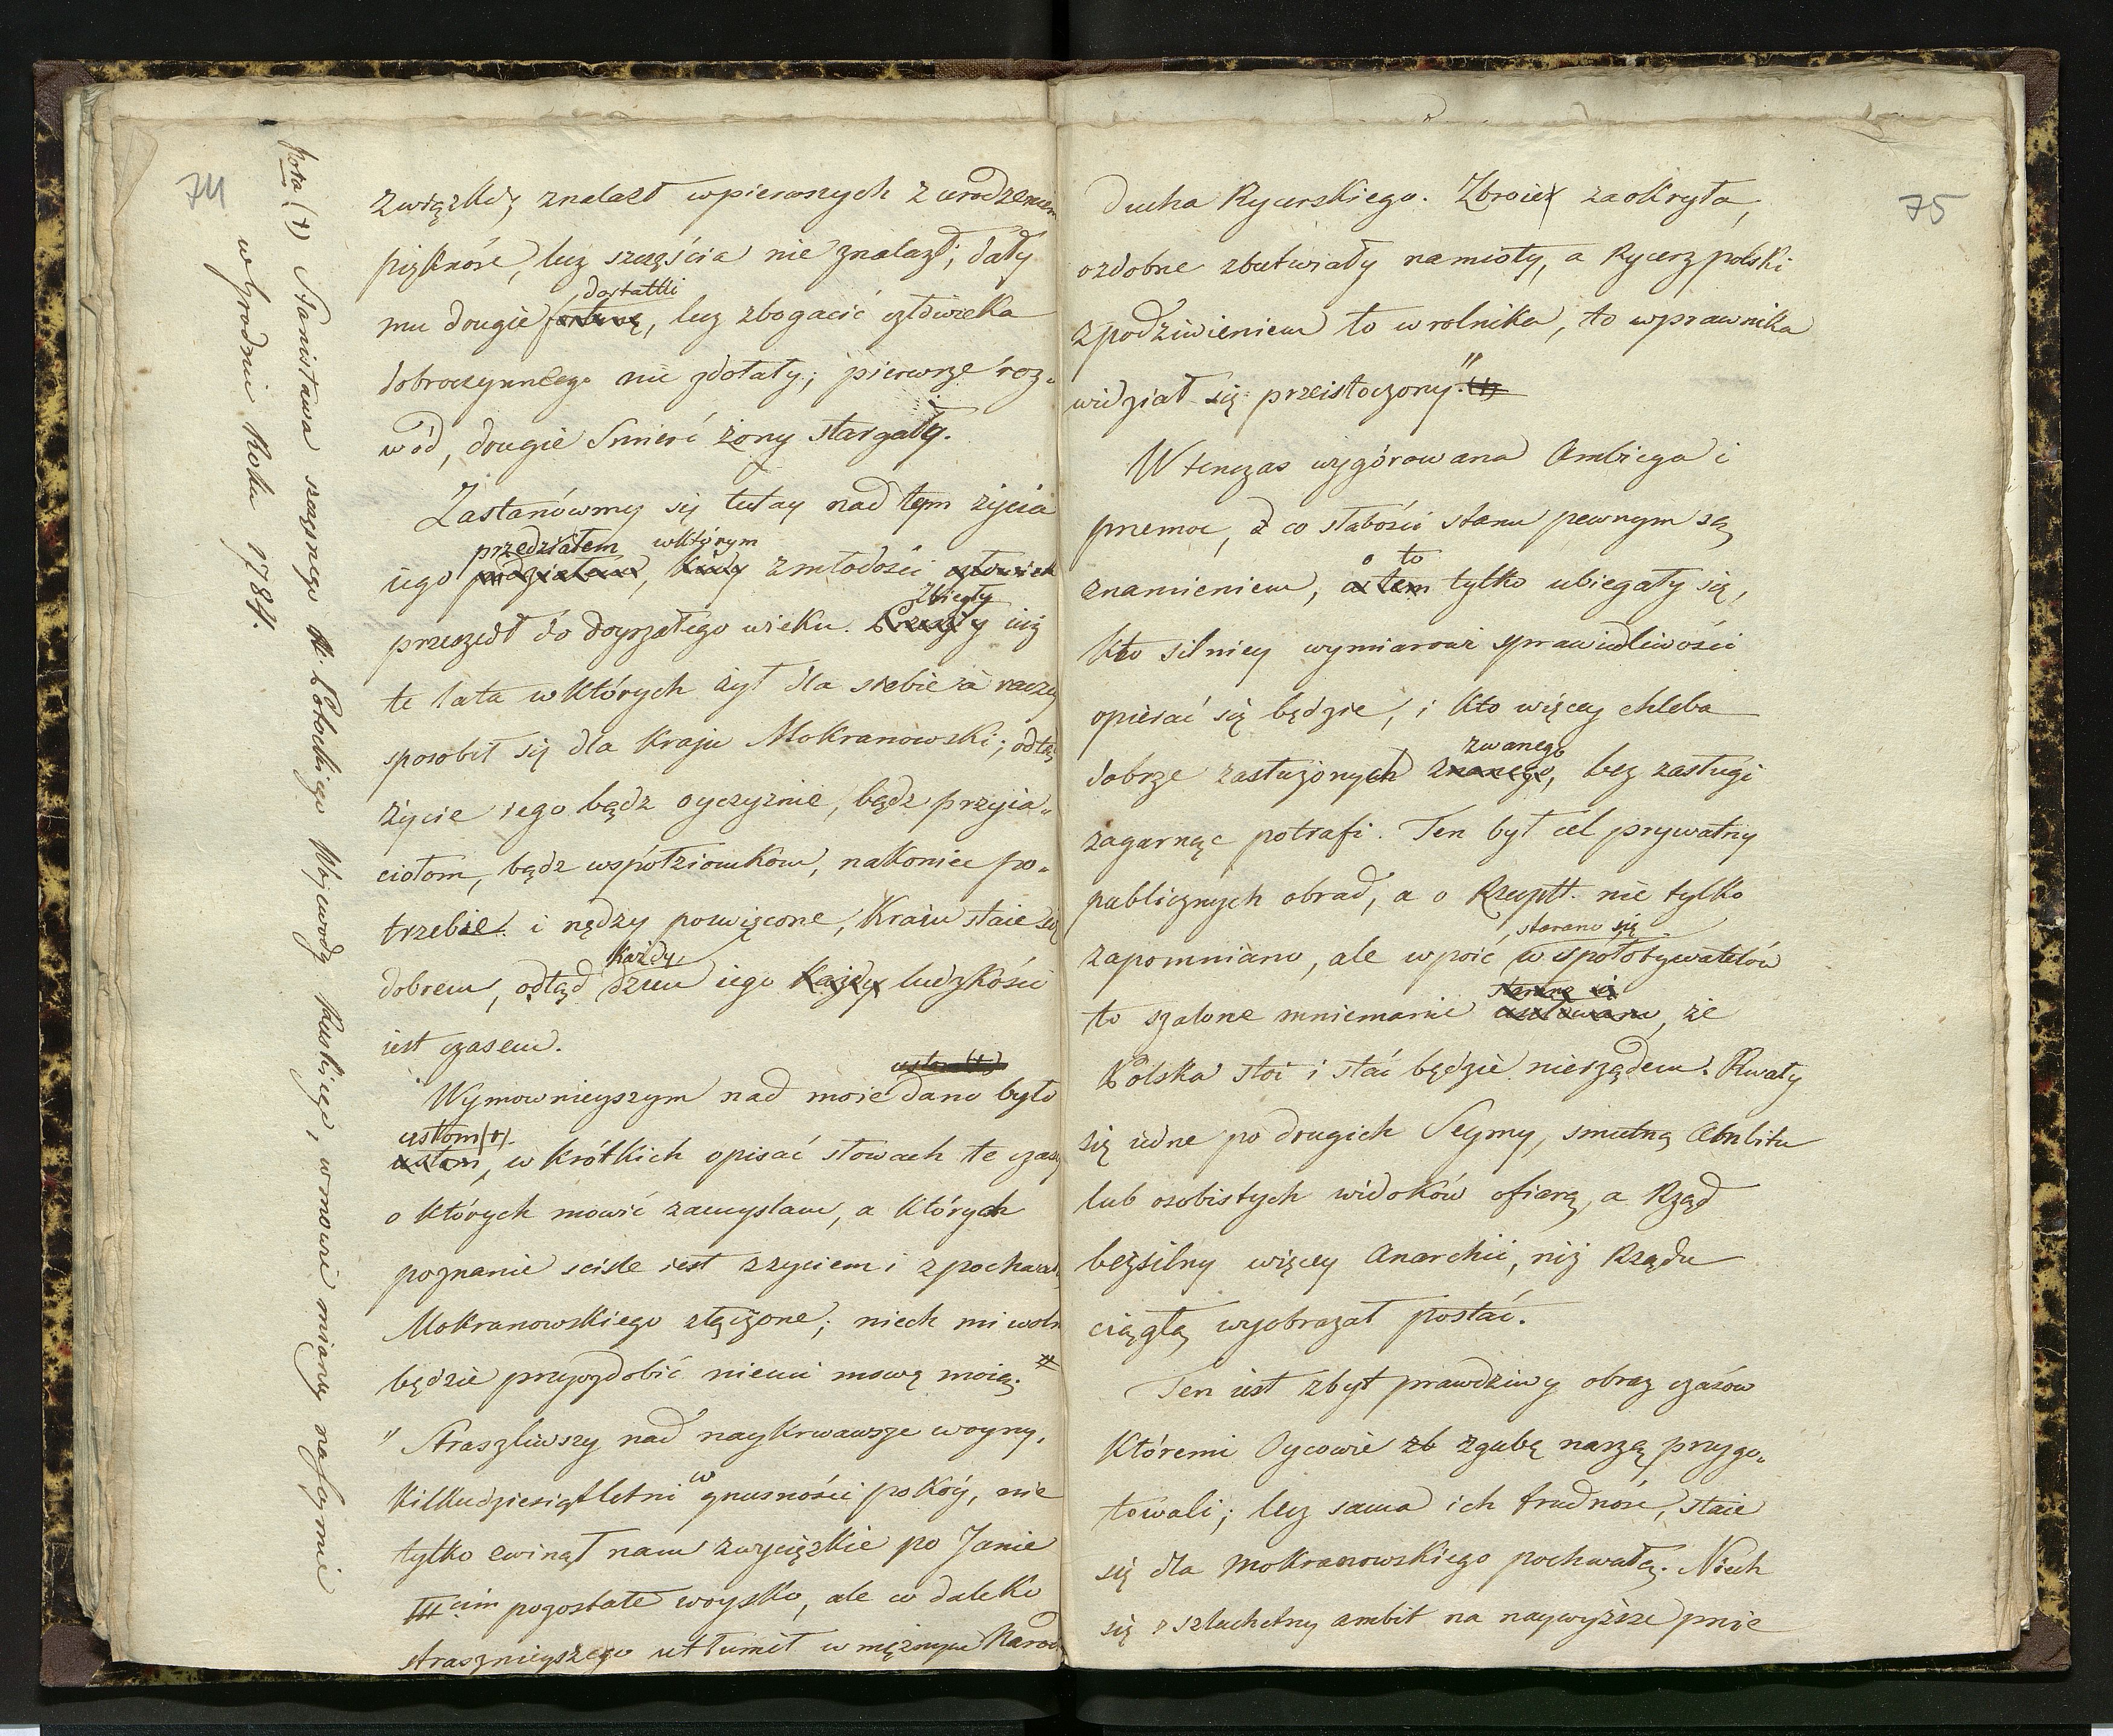 74
związki, znalazł w pierwszych z urodzeniem
piękność, lecz szczęścia nie znalazł; dały
dostatki
mu drugie fortunę, lecz zbogacić człowieka
dobroczynnego nie zdołały; pierwsze roz-
wód, drugie Smierć żony stargały.
Zastanówmy się tutay nad tym życia
przedziałem wktórym
iego zmłodości człowiek
przeszedł do doyrzałego wieku. Zbiegły iuż
te lata w których żył dla siebie a raczey
sposobił się dla kraju Mokranowski; odtąd
życie iego bądz oyczyznie, bądz przyia-
ciołom, bądz współziomkom, nakoniec po-
trzebie i nędzy poswięcone, Kraiu staie się
każdy
dobrem, odtąd dzień iego każdy ludzkości
iest czasem.
Wymownieyszym nad moie dano było
ustom (+).
ustom, w krótkich opisać słowach te czasy
o których mowić zamyslam, a których
poznanie scisle iest zżyciem i zpochwałą
Mokranowskiego złączone; niech mi wolno
będzie przyozdobić niemi mowę moią.
" Straszliwszy nad naykrwawsze woyny,
kilkudziesiątletni w gnusności pokóy, nie
tylko zwinął nam zwycięzkie po Janie
IIIcim pozostałe woysko, ale co daleko
strasznieyszego utłumił w mężnym Narodzie
nota (+) Stanisława szczęsnego Potockiego Wojewody Ruskiego, w mowie mianey na Seymie
w Grodnie Roku 1784.
75
Ducha Rycerskiego. Zbroie rza okryła,
ozdobne zbutwiały namioty, a Rycerz polski
zpodziwieniem to w rolnika, to wprawnika
widział się przeistoczony." (+)
W tenczas wygórowana Ambicya i
przemoc, a co słabości stanu pewnym są
o to
znamieniem, a tem tylko ubiegały się,
kto silniey wymiarowi sprawiedliwości
opierać się będzie, i kto więcey chleba
zwanego
dobrze zasłużonych znanego, bez zasługi
zagarnąć potrafi. Ten był cel prywatny
publicznych obrad, a o Rzeuptt. nie tylko
starano się
zapomniano, ale wpoić, w współobywatelów
starano się
to szalone mniemanie usiłowano, że
Polska stoi i stać będzie nierządem. Rwały
się iedne po drugich Seymy, smutną Ambitu
lub osobistych widoków ofiarą, a Rząd
bezsilny więcey Anarchii, niż Rządu
ciągłą wyobrazał postać.
Ten iest zbyt prawdziwy obraz czasów
któremi Oycowie zb zgubę naszą przygo-
towali; lecz sama ich trudność, staie
się dla Mokranowskiego pochwałą. Niech
się szlachetny ambit na naywyższe pnie